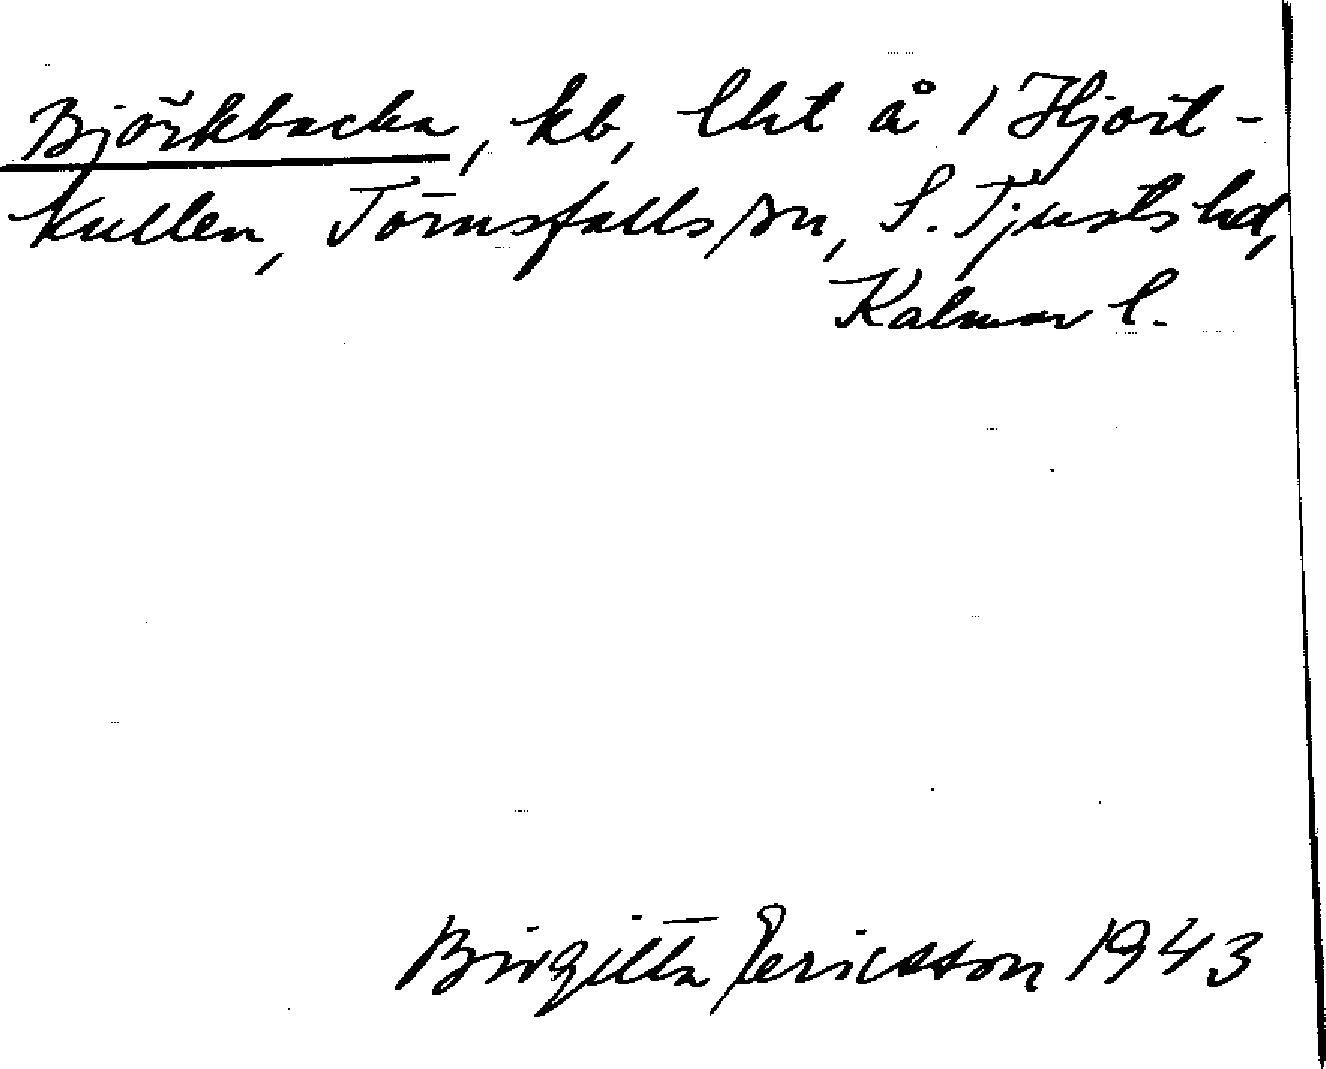 Björkbacka, kb, lht å 1 Hjort-
kullen, Törnsfalls sn, S. Tjusts hd,
Kalmar l.
Birgitta Ericsson 1943